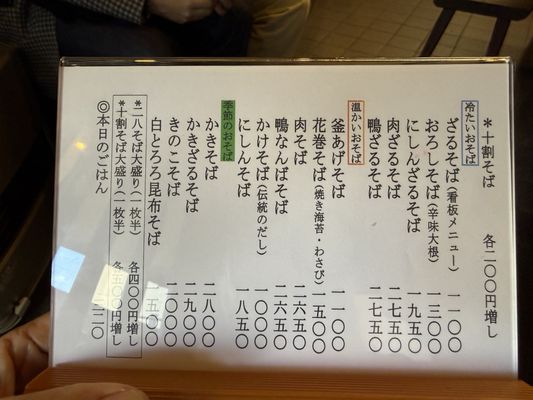 *十割そば 各二〇〇円増し
冷たいおそば
ざるそば(看板メニュー) 一一〇〇
おろしそば(辛味大根) 一三〇〇
にしんざるそば 一九五〇
肉ざるそば 二七五〇
鴨ざるそば 二七五〇
温かいおそば
釜あげそば 一一〇〇
花巻そば(焼き海苔・わさび) 一五〇〇
肉そば 二六五〇
鴨なんばそば 二六五〇
かけそば(伝統のだし) 一〇〇〇
にしんそば 一八五〇
季節のおそば
かきそば 二八〇〇
かきざるそば 二九〇〇
きのこそば 二〇〇〇
白とろろ昆布そば 一五〇〇
*二八そば大盛り(一枚半) 各四〇〇円増し
*十割そば大盛り(一枚半) 各五〇〇円増し
◎本日のごはん 二二〇